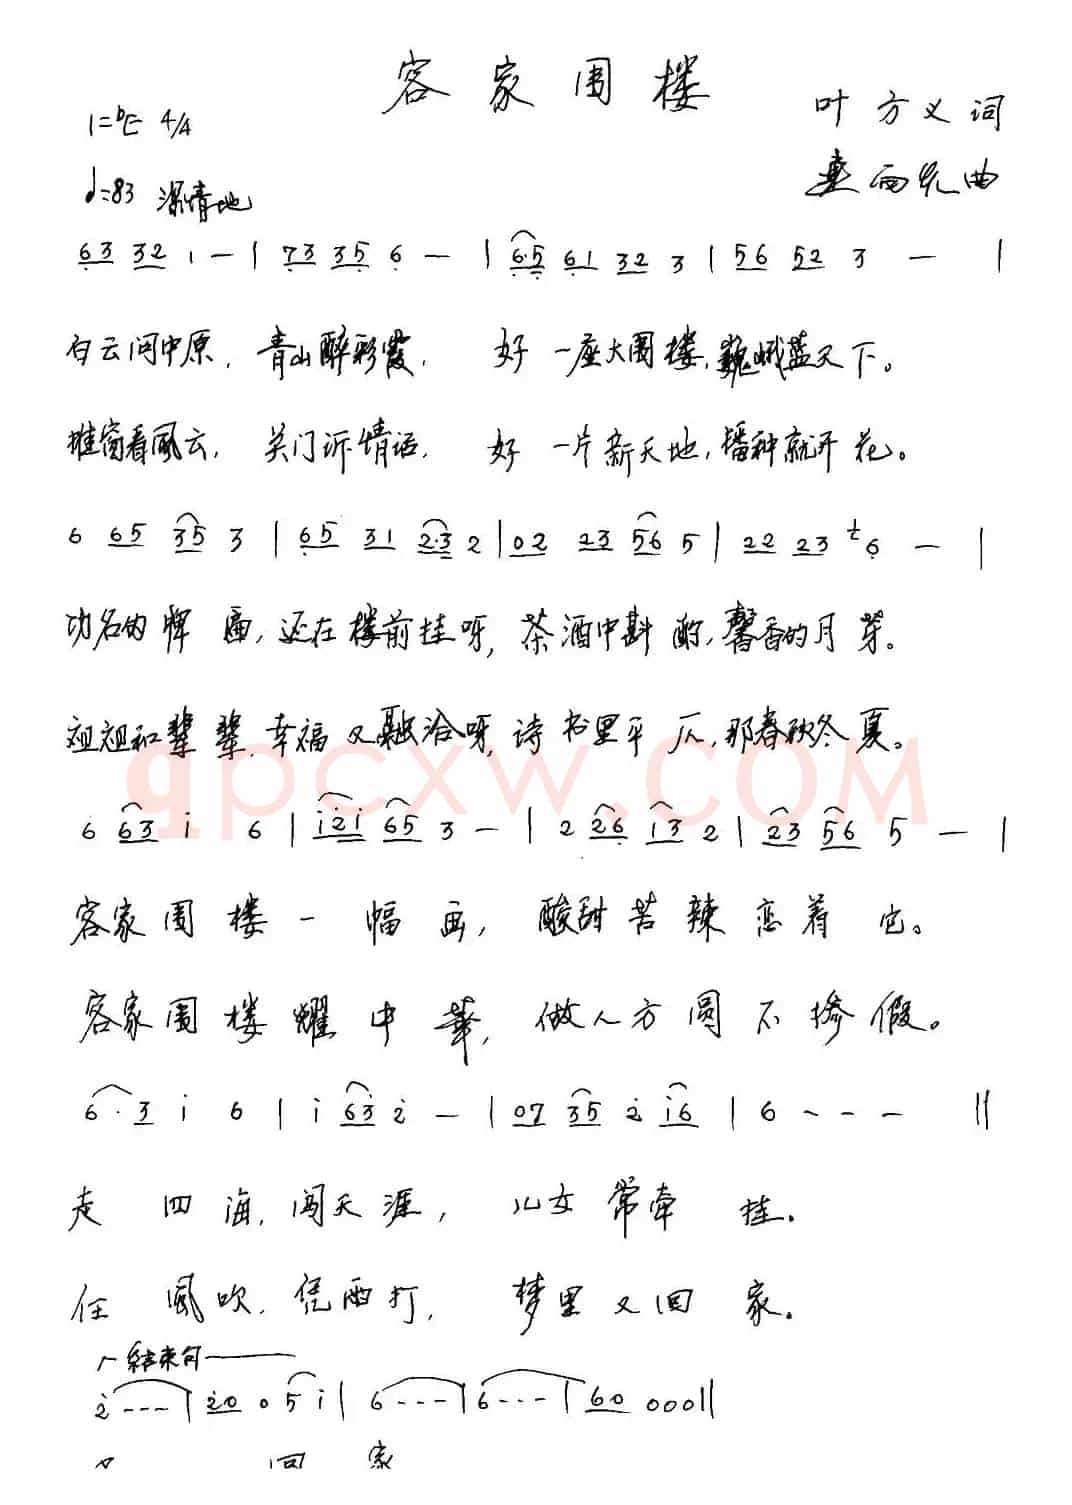 客家围楼
1=bE 4/4
叶方义词
♩=83 深情地
雨先曲
63 32 1 — | 73 35 6 — | 6·5 61 32 3 | 56 52 3 — |
白云问中原，青山醉彩霞， 好一座大围楼，巍峨蓝天下。
推窗看风云，关门诉情话， 好一片新天地，播种就开花。
6 65 35 3 | 65 31 2·3 2 | 02 23 56 5 | 22 23 6 — |
功名的牌匾，还在楼前挂呀，茶酒中斟酌，馨香的月芽。
翅翅和辈辈，幸福又融洽呀，诗书里平仄，那春秋冬夏。
6 63 i 6 | i2i 65 3 — | 2 26 13 2 | 23 56 5 — |
客家围楼一幅画，酸甜苦辣恋着它。
客家围楼耀中华，做人方圆不掺假。
6·3 i 6 | i 63 2 — | 07 35 2 i6 | 6 - - - ||
走四海，闯天涯，儿女常牵挂。
任风吹，凭雨打，梦里又回家。
结束句
2 - - - | 20 0 5 i | 6 - - - | 6 - - - | 60 000 ||
又 回 家
qpcxw.com